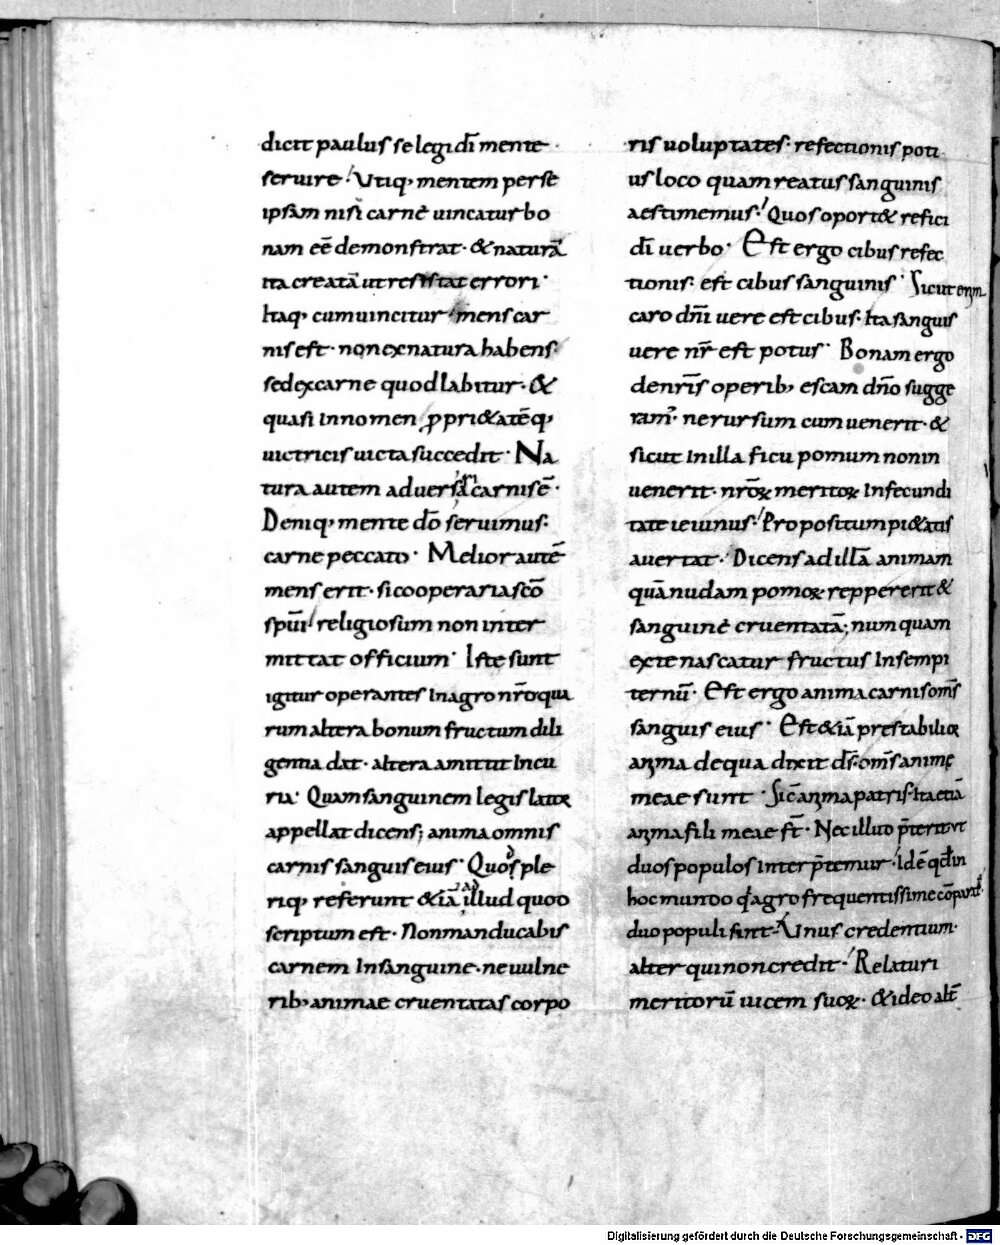 dicit paulus se legi dī mente
seruire. Utiq; mentem per se
ipsam nisi carnē uincatur bo
nam eē demonstrat. & naturā
ita creatā ut resistat errori.
Itaq; cum uincitur mens car
nis est. non ex natura habens.
sed ex carne quod labitur. &
quasi in nomen ꝓpri&atē q;
uictricis uicta succedit. Na
tura autem aduersa carnis ē.
Deniq; mente dō seruimus.
carne peccato. Melior autē
mens erit. si cooperaria scō
spūi religiosum non inter
mittat officium. Istę sunt
igitur operantes in agro nrō qua
rum altera bonum fructum dili
gentia dat. altera amittit incu
ria. Quam sanguinem legislatoꝝ
appellat dicens; anima omnis
carnis sanguis eius. Quod ple
riq; referunt &iā ad illud quod
scriptum est. Non manducabis
carnem in sanguine. ne uulne
rib; animae cruentatas corpo
ris uoluptates. refectionis poti
us loco quam reatus sanguinis
aestimemus. Quos oport& refici
dī uerbo. Est ergo cibus refec
tionis. est cibus sanguinis. Sicut enim
caro dn̄i uere est cibus. Ita sanguis
uere nr̄ est potus. Bonam ergo
de nrīs operib; escam dn̄o sugge
ram; ne rursum cum uenerit. &
sicut in illa ficu pomum non in
uenerit. nrōꝝ meritoꝝ infecundi
tate ieiunus. Propositum pi&atis
auertat. Dicens ad illā animam
quā nudam pomoꝝ reppererit &
sanguinē cruentatā; numquam
ex te nascatur fructus in sempi
ternū. Est ergo anima carnis om̄s
sanguis eius. Est &iā prestabilioꝝ
anima de qua dixit dś. om̄s animę
meae sunt. Sic anima patris. Ita etiā
anima fili meae sť. Nec illud p̄terit ut
duos populos interp̄temur. Idē qd in
hoc mundo qd agro frequentissime cōparat.
duo populi sint. Unus credentium.
alter qui non credit. Relaturi
meritorū uicem suoꝝ. & ideo alť